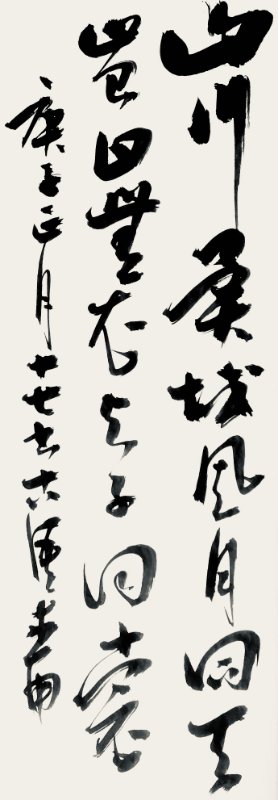 山川異域風月同天
豈曰無衣与子同裳
庚子正月十七